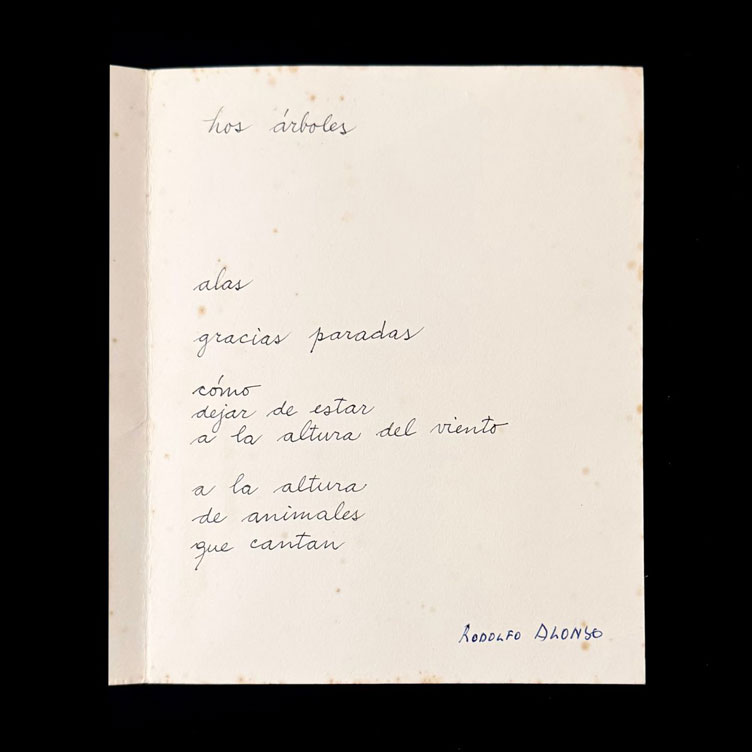 Los árboles
alas
gracias paradas
cómo
dejar de estar
a la altura del viento
a la altura
de animales
que cantan
RODOLFO ALONSO